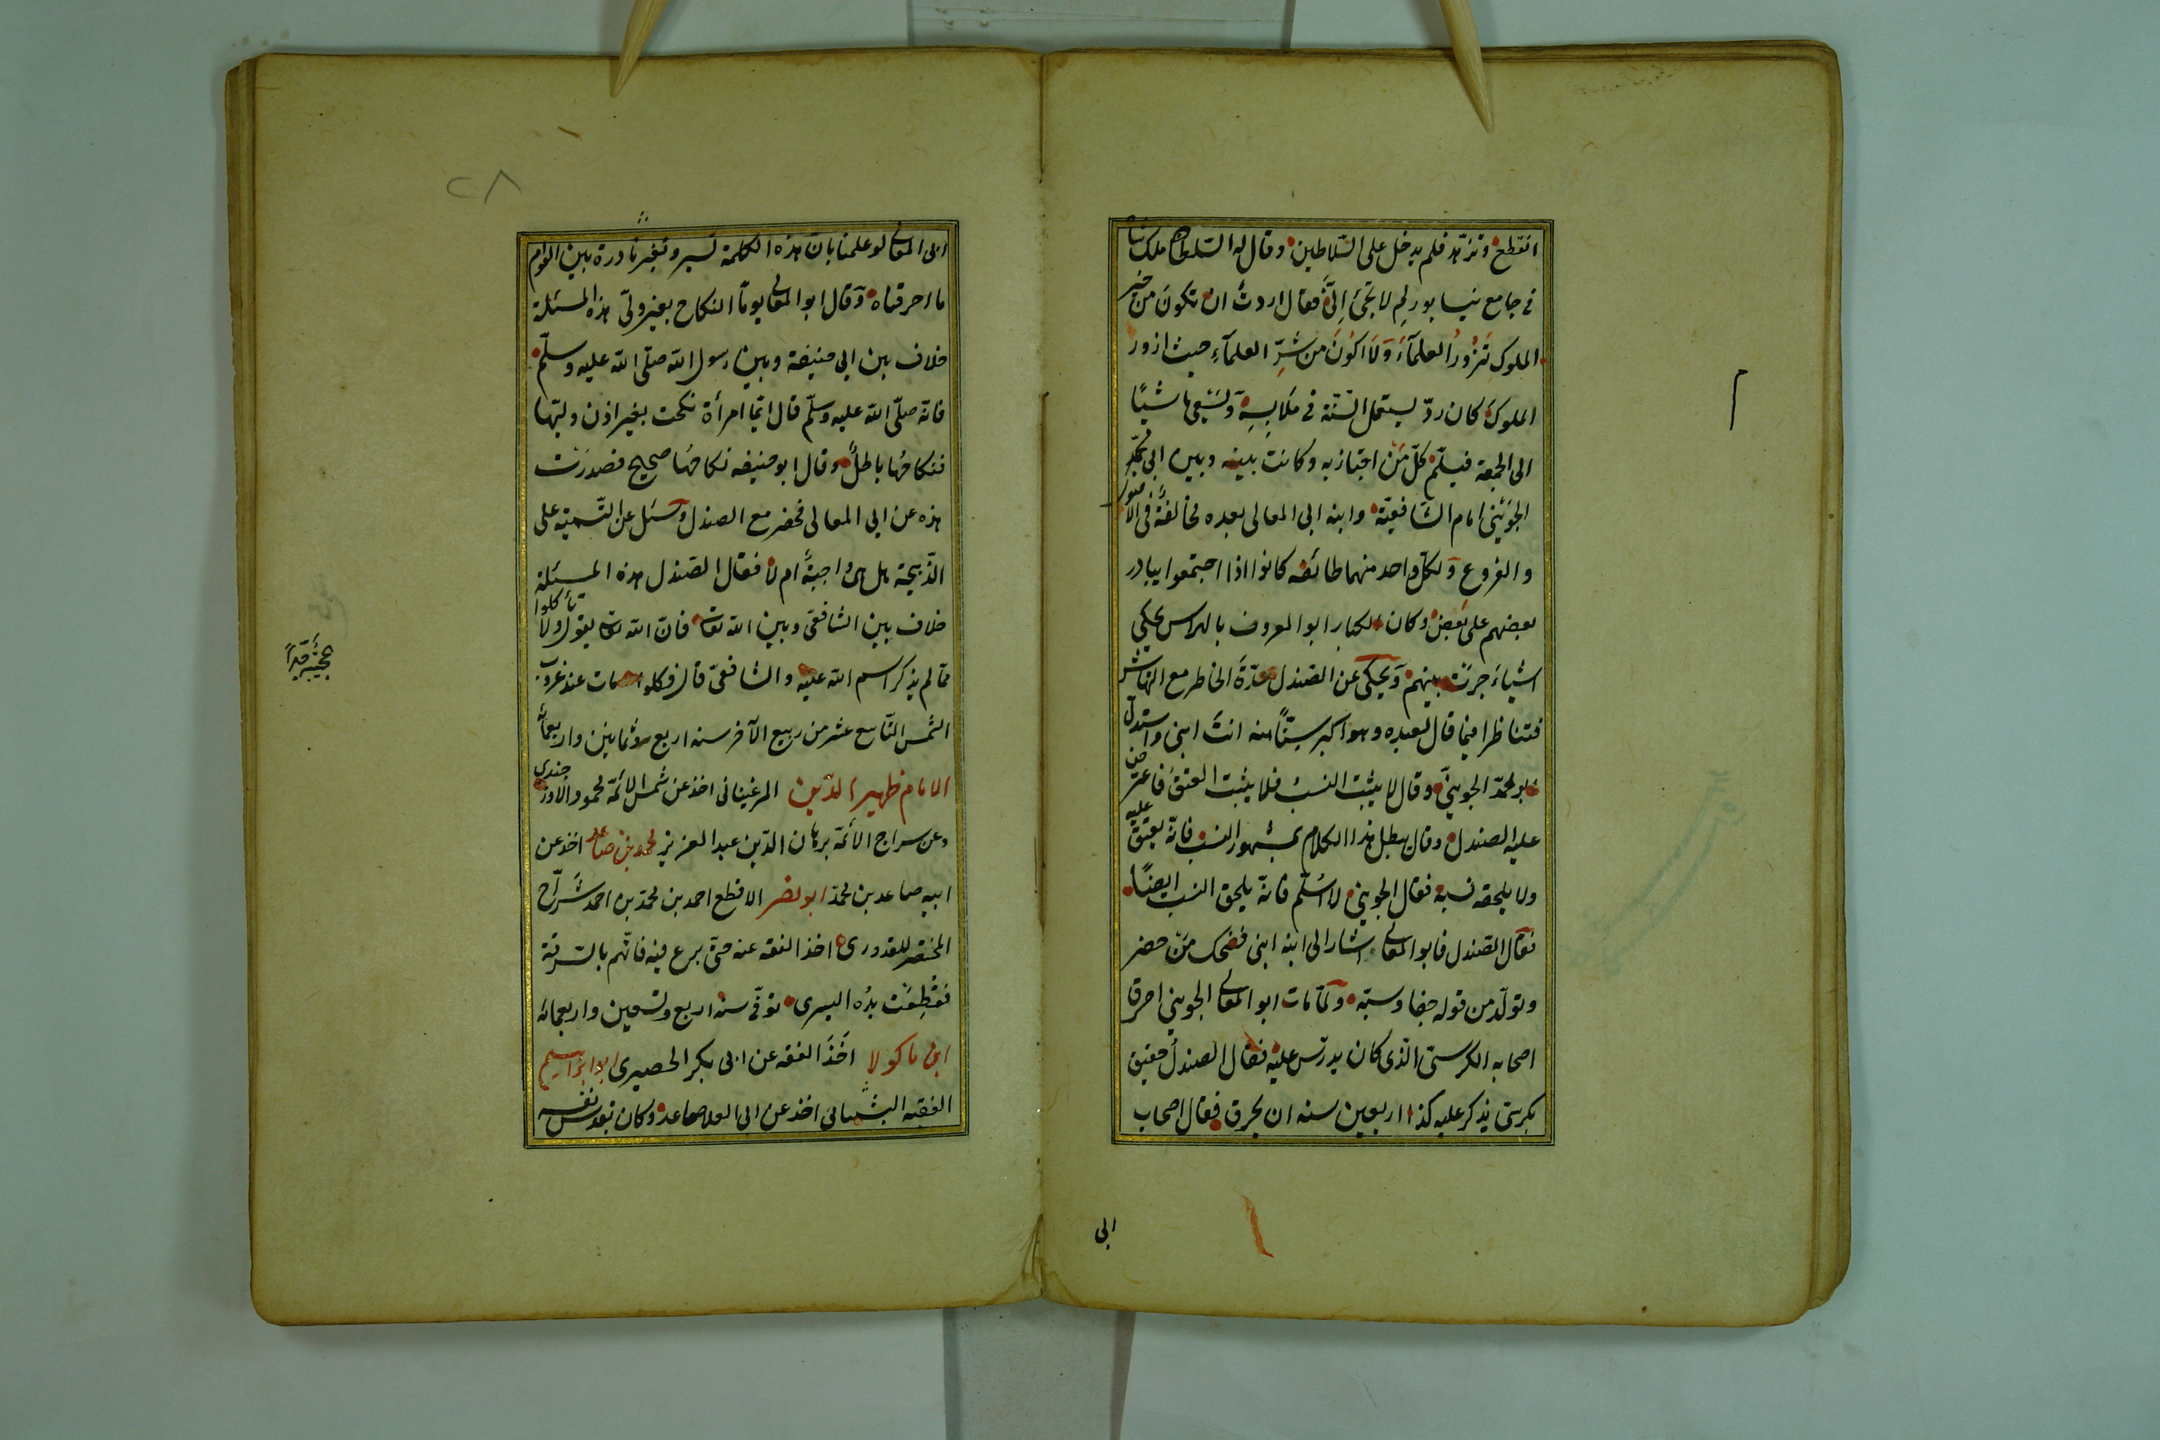 انقطع وتزهد فلم يدخل على السّلاطين وقال له السّلطان ملك شاه
في جامع نيسابور لِم لا تجئ اِليَّ فقال اردتُ ان تكونَ من خير
الملوك تَزُورُ العلمآءَ وَلَا اكونَ من شرّ العلمآءِ حيث ازور
الملوك كان ردّ يستعمل السّنّة في مَلَابِسِهِ وَيسعى ماشيًا
الى الجمعة فيسلّم كلّ مَنْ اجتاز به وكانت بينه وبين ابى محمّد
الجوَيْنى امام الشّافعيّة وابنه ابى المعالى بعده مخالفة فى الاصول
والفروعِ ولكلّ واحد منهما طائفه كانوا اذا اجتمعوا يبادر
بعضهم على بعض وكان الكبار ابو المعروف بالهراس يحكي
اشياءَ جرَتْ بينهم وَيحكى عن الصّندل حدّةَ الخاطر مع النهاش
فتناظرا فيما قال لعبده وهو اكبر سِنّاً منه انتَ ابنى واستدلّ
ابو محمّد الجوينيّ وقال لا يثبت النسَبُ فلا يثبت العتقُ فاعترض
عليه الصندل وقال يبطل هذا الكلام بمشهور النسب فانّه يعتق عليه
ولا يلحقه نسبه فقال الجوينى لا اسَلّم فانّه يلحق النسب ايضًا
فقال الصّندل فابو المعالى اشار الى ابنه ابنى فضحك مَنْ حضر
وتولّد من قوله جفا وسبّه ولمّا مات ابو المعالى الجوينى احرق
اصحابه الكرسىّ الّذى كان يدرّس عليه فقال الصندل حقيق
بكرسىّ يذكر عليه كذا اربعين سنه ان يحرق فقال اصحاب
ابى
٢٨
ابى المعالى لو علمنا بانّ هذه الكلمة تسير وتبقى نادرة بين القوام
ما احرقناه وقال ابو المعالى يوماً النكاح بغير ولىّ هذه المسئلة
خلاف بين ابى حنيفة وبين رسول اللّه صلّى اللّه عليه وسلّم
فانه صلّى اللّه عليه وسلّم قال ايّما امرأة نكحت بغير اذن وليّها
فنكاحُها باطلٌ وقال ابو حنيفه نكاحُها صحيح فصدرَت
هذه عن ابي المعالى فحضر مع الصندل وسئل عن التّسمية على
الذّبيحة هل هى واجبةٌ ام لا فقال الصّندل هذه المسئلة
خلاف بين الشافعىّ وبين اللّه تعالى فانّ اللّه تعالى يقول ولا تأكلوا
ممّا لم يذكر اسم اللّه عليه والشافعىّ قال فكلوا مات عند غروب
الشمس التّاسع عشر من ربيع الآخر سنه اربع وثمانين واربعمائه
الامام ظهير الدّين المرغينانى اخذ عن شمس الائمّة محمود الاوزجندى
وعن سراج الائمّة برهان الدّين عبد العزيز محمد بن صاعد اخذ عن
ابيه صاعد بن محمّد ابو نصر الاقطع احمد بن محمّد بن احمد شَرّاح
المختصر للقدورى اخذ الفقه عنه حتّى برع فيه فاتّهم بالسّرقة
فقُطِعَت يدُه اليسرى توفّى سنه اربع وتسعين واربعمائه
ابن ماكولا اَخَذَ الفقه عن ابى بكر الحصيرى ابو ابراهيم
الفقيه الشّيبانى اخذ عن ابى العلا صاعد وكان يقدس نفسه